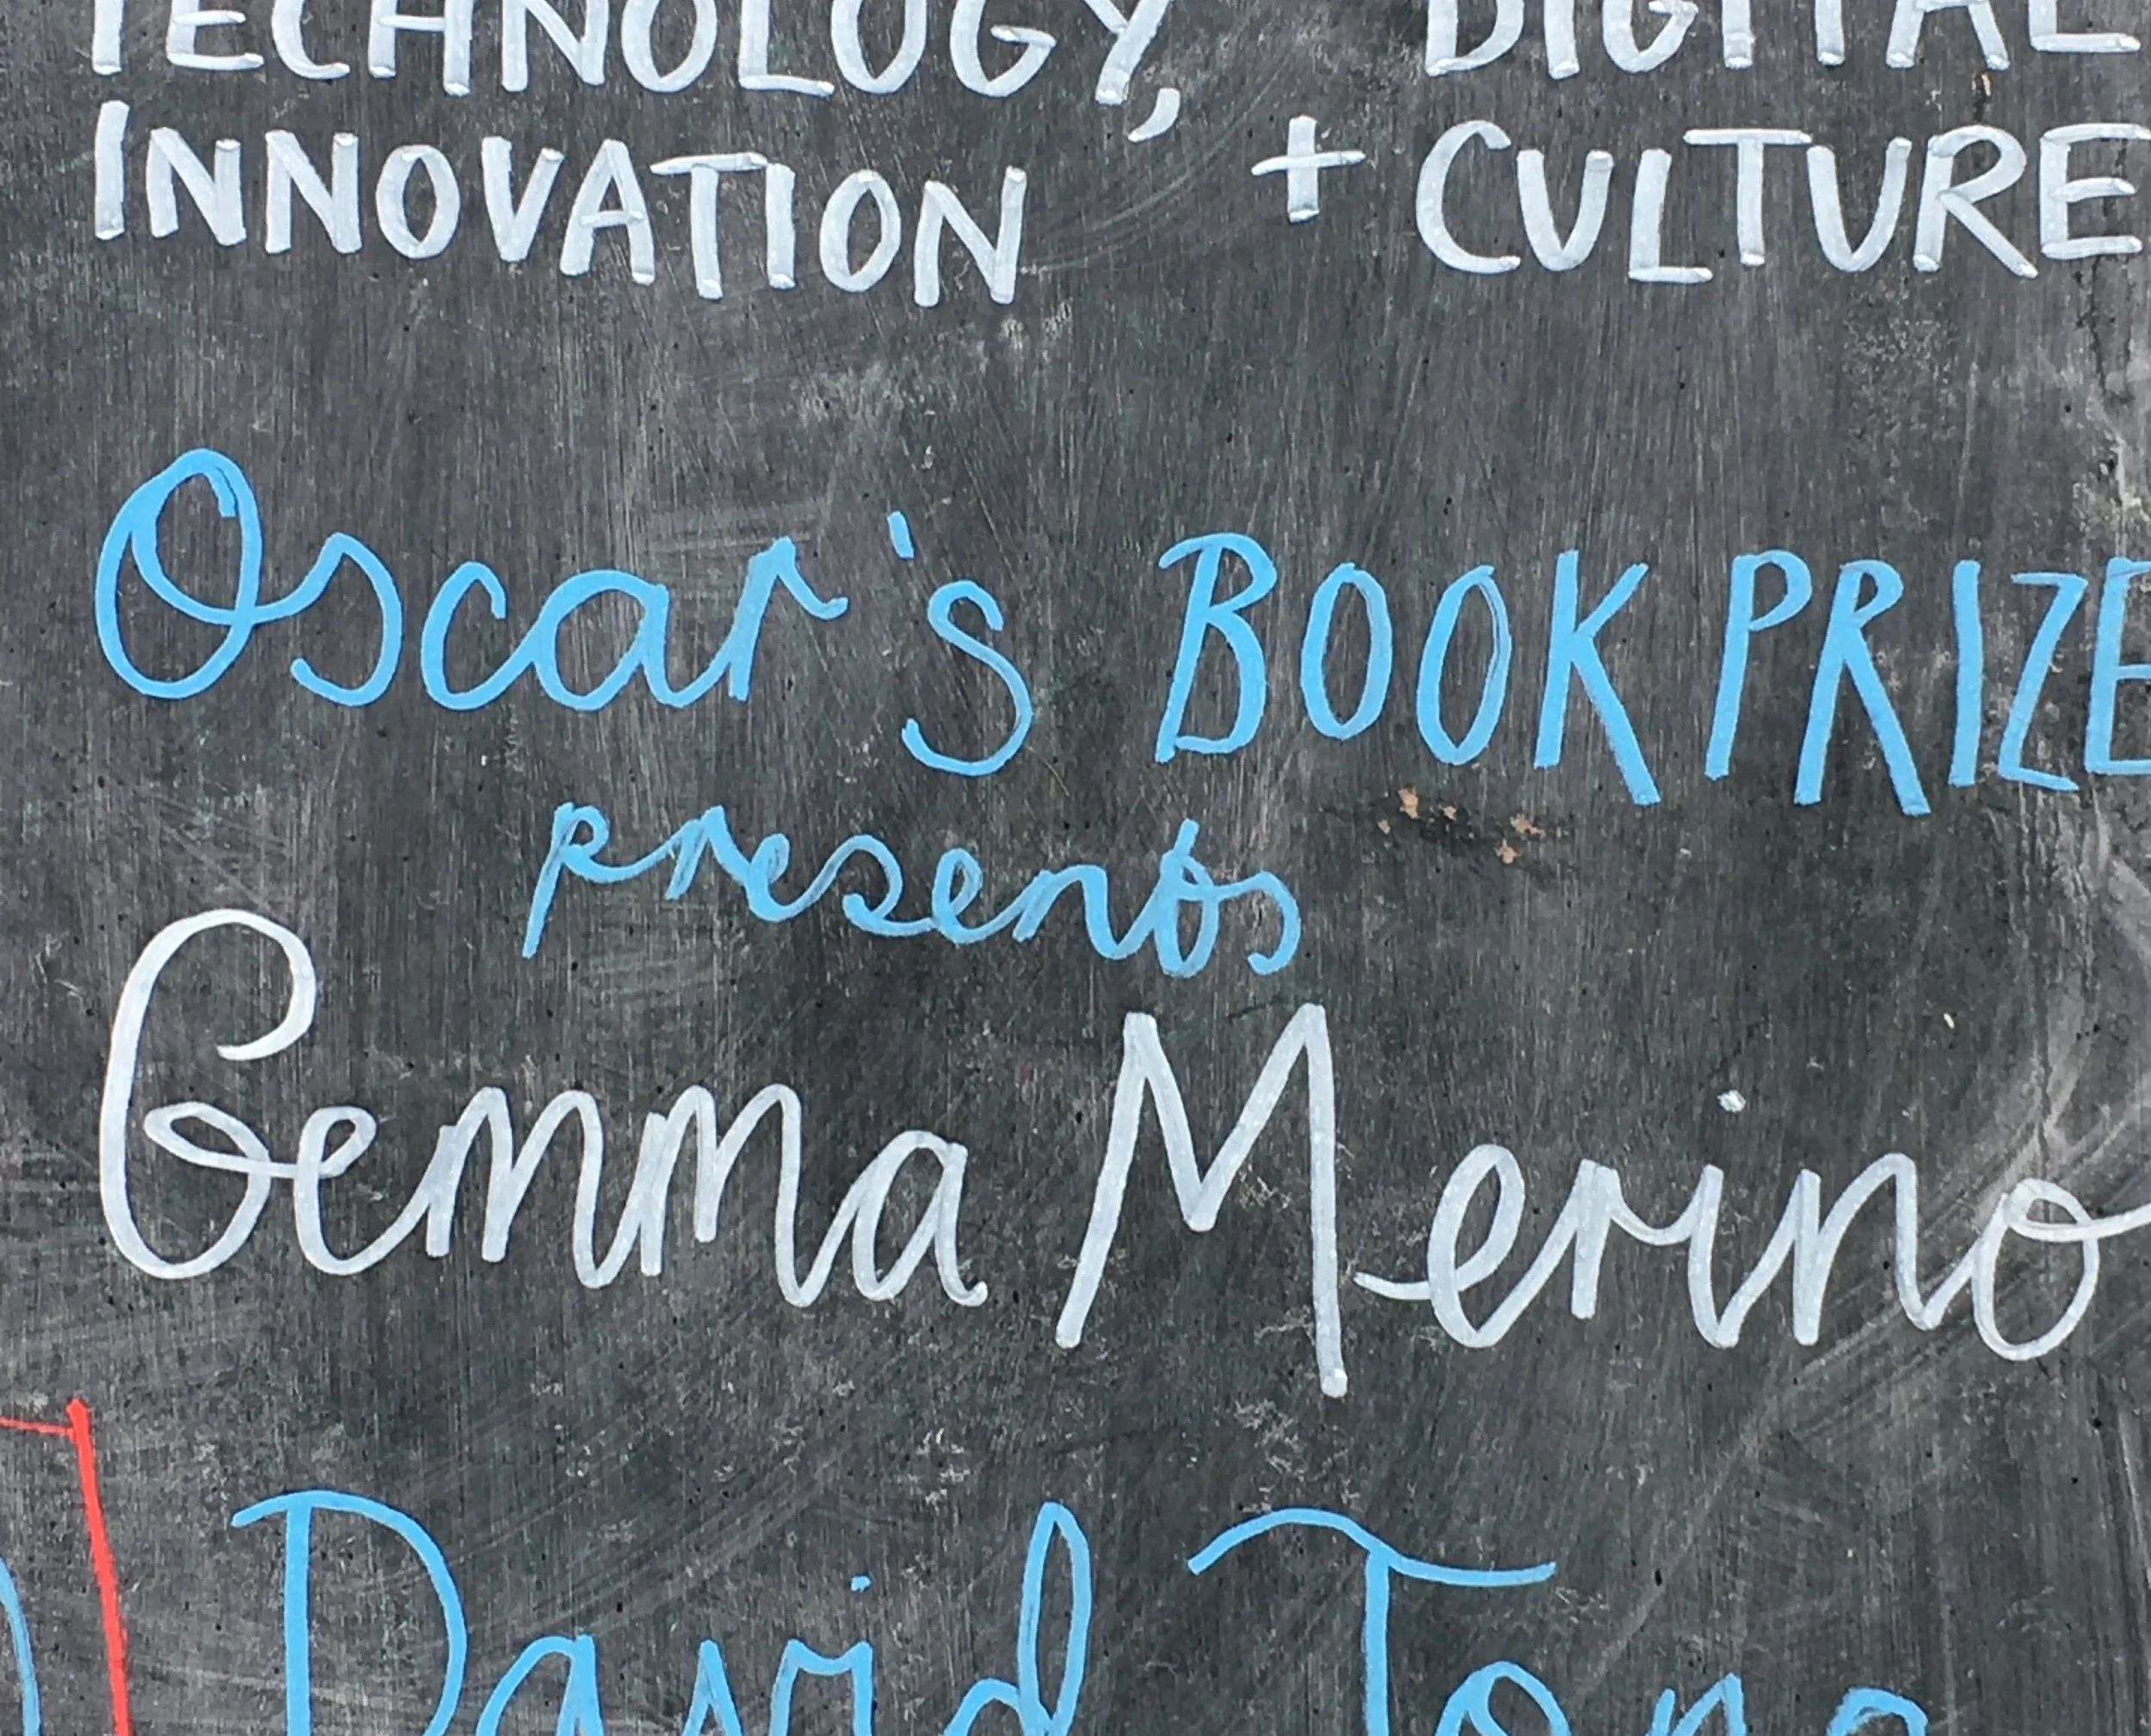 TECHNOLOGY, DIGITAL
INNOVATION + CULTURE
Oscar's BOOK PRIZE
presents
Gemma Merino
David